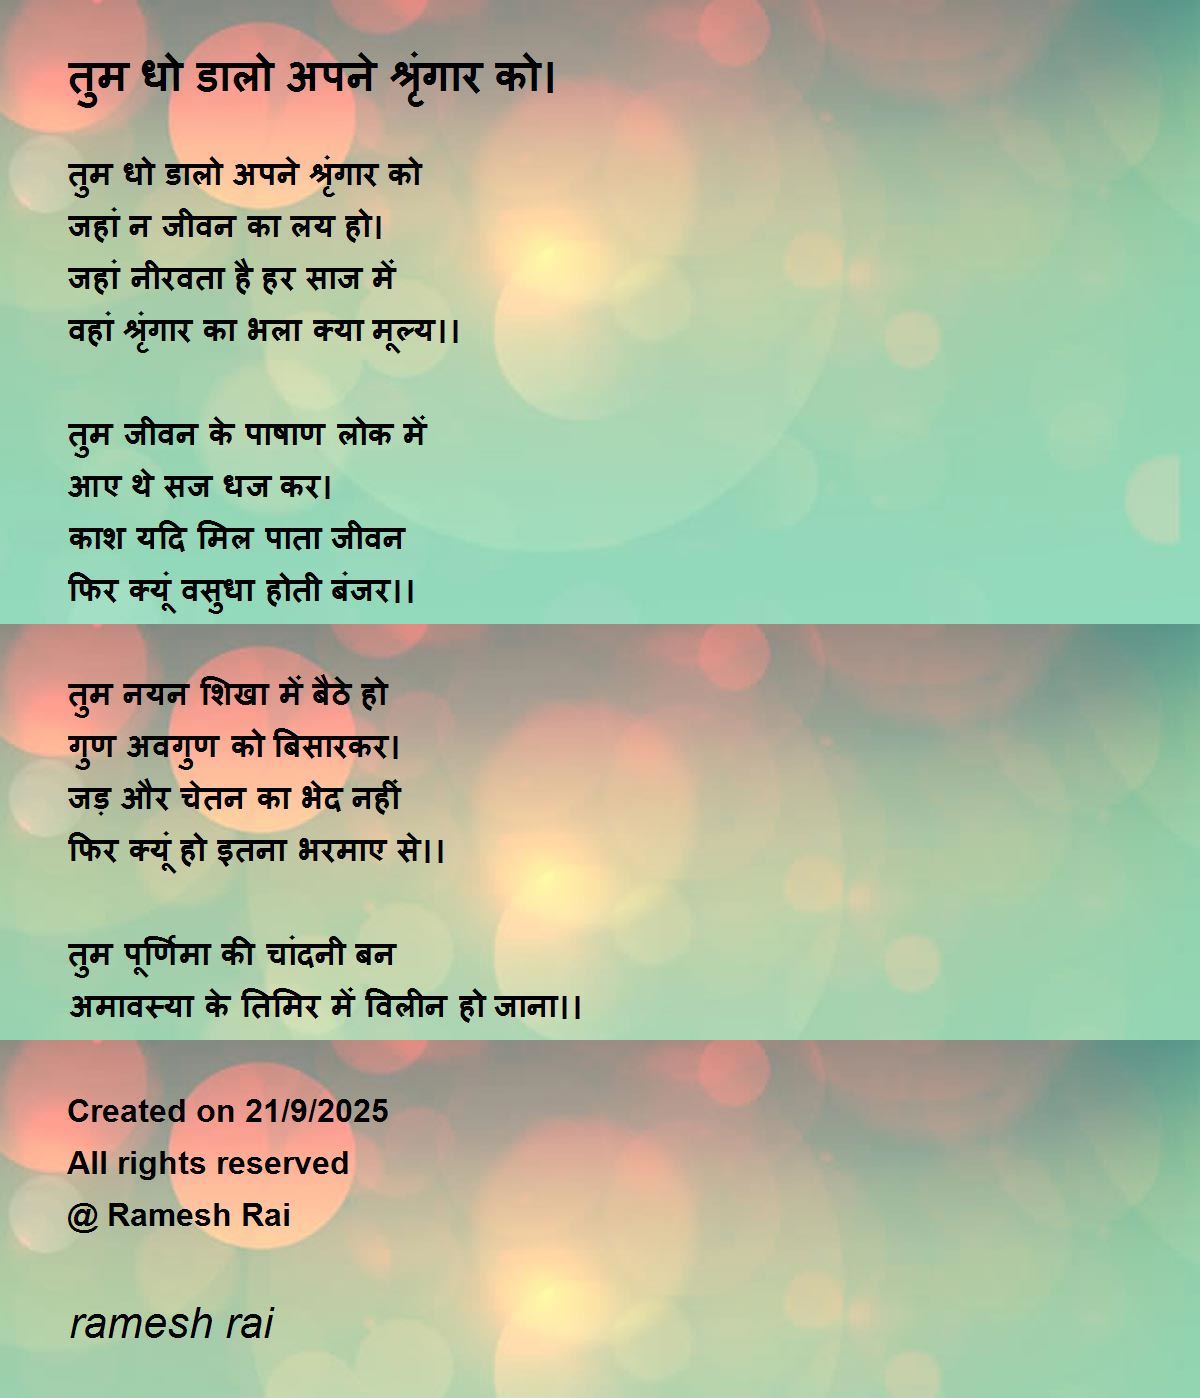 तुम धो डालो अपने श्रृंगार को।
तुम धो डालो अपने श्रृंगार को
जहां न जीवन का लय हो।
जहां नीरवता है हर साज में
वहां श्रृंगार का भला क्या मूल्य।।
तुम जीवन के पाषाण लोक में
आए थे सज धज कर।
काश यदि मिल पाता जीवन
फिर क्यूं वसुधा होती बंजर।।
तुम नयन शिखा में बैठे हो
गुण अवगुण को बिसारकर।
जड़ और चेतन का भेद नहीं
फिर क्यूं हो इतना भरमाए से।।
तुम पूर्णिमा की चांदनी बन
अमावस्या के तिमिर में विलीन हो जाना।।
Created on 21/9/2025
All rights reserved
@ Ramesh Rai
ramesh rai